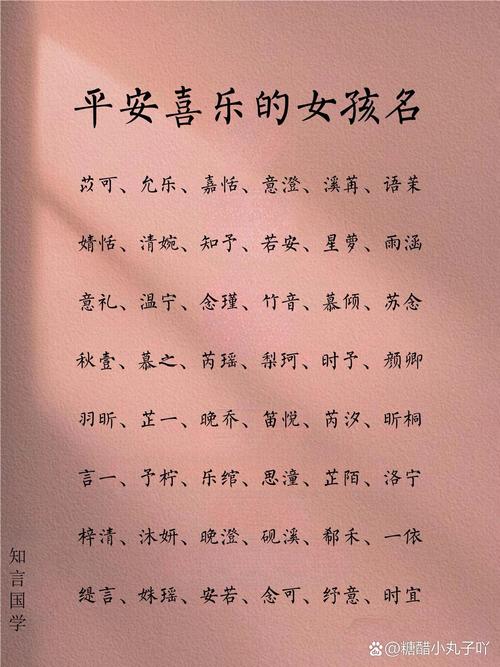 平安喜乐的女孩名
苡可、允乐、嘉恬、意澄、溪苒、语茉
婧恬、清婉、知予、若安、星萝、雨涵
意礼、温宁、念瑾、竹音、慕倾、苏念
秋壹、慕之、芮瑶、梨珂、时予、颜卿
羽昕、芷一、晚乔、笛悦、芮汐、昕桐
言一、予柠、乐绾、思潼、芷陌、洛宁
梓清、沐妍、晚澄、砚溪、郗禾、一依
缇言、姝瑶、安若、念可、纾意、时宜
知言国学
@糖醋小丸子吖